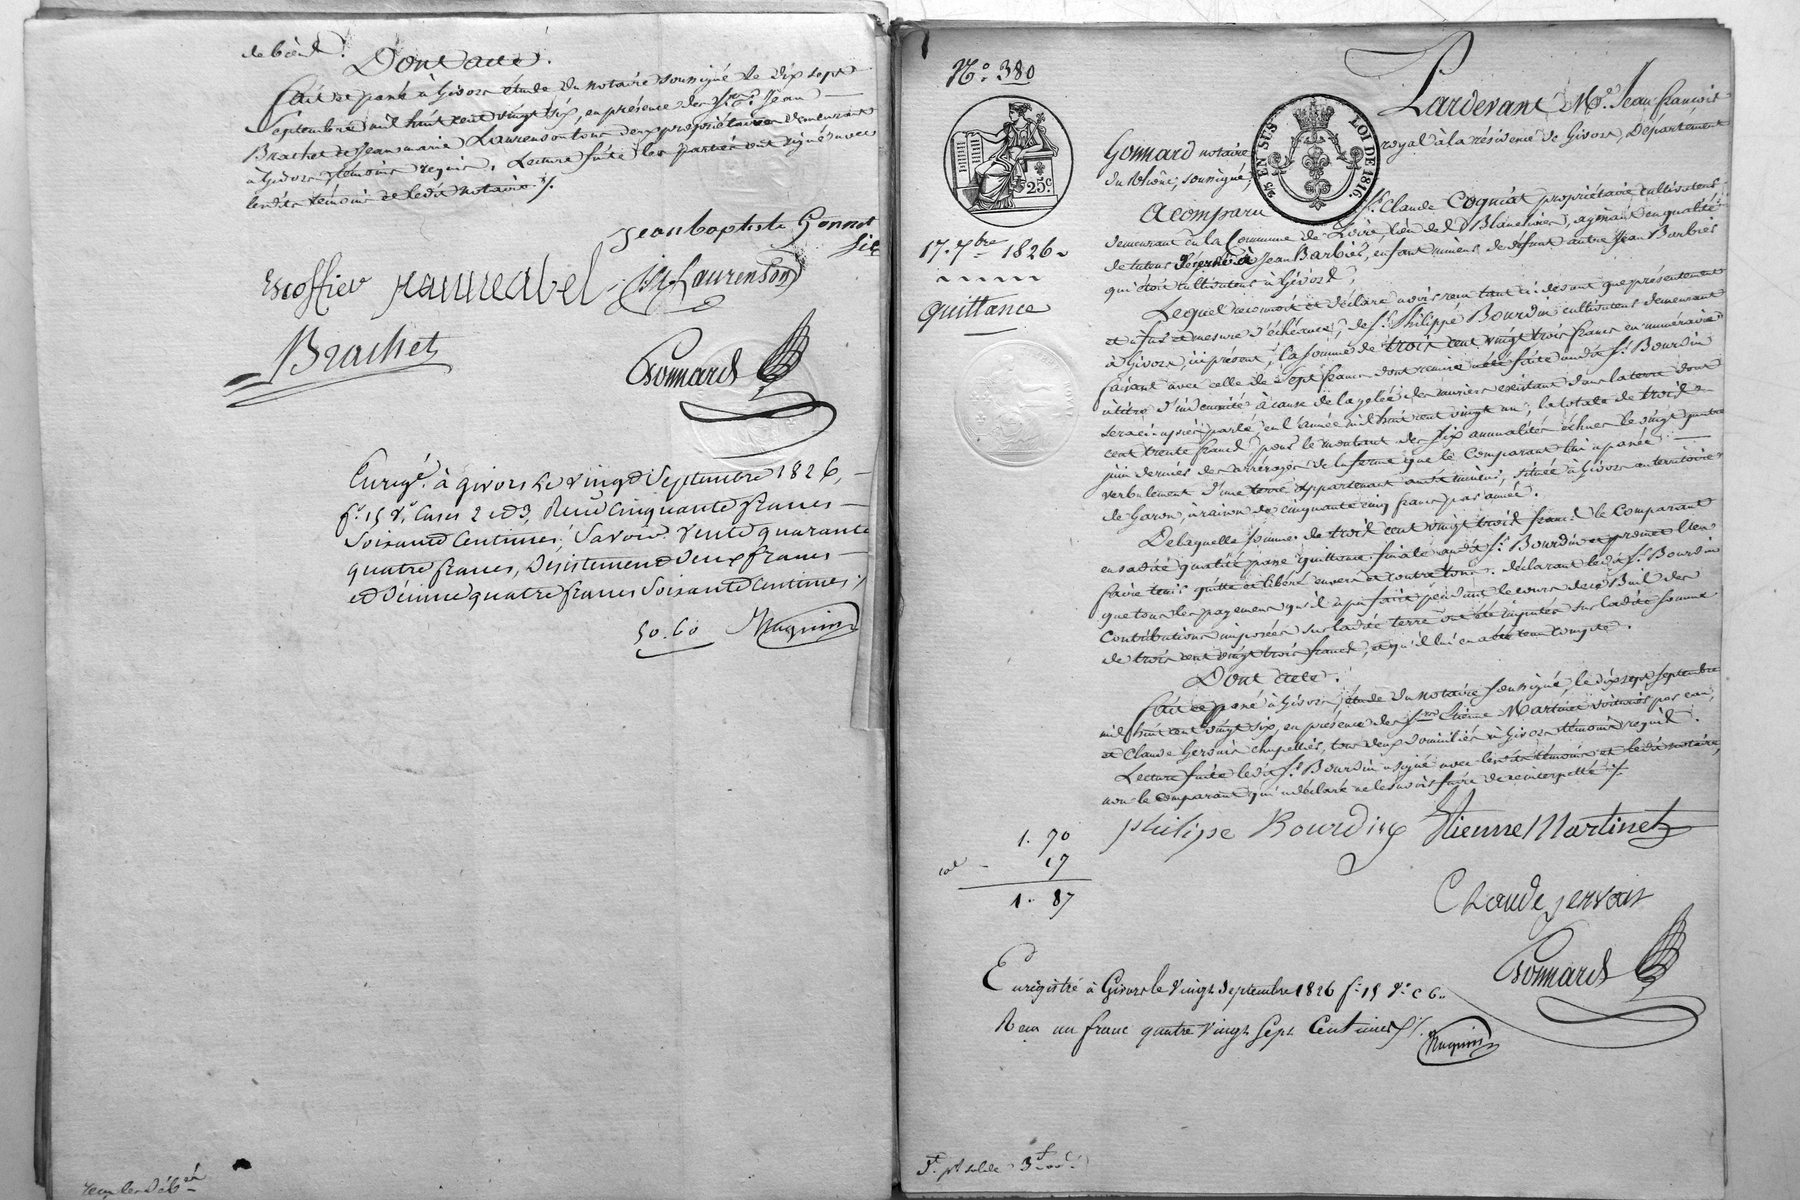 de bœuf.
Dont acte.
Fait et passé à Givors étude du notaire soussigné le dix sept
Septembre mil huit cent vingt six, en présence des Srs. Jean
Brachet et Jean marie Laurenson tous deux propriétaires demeurant
à Givors témoins requis. Lecture faite les parties ont signé avec
lesdits témoins et ledit notaire ./.
Jeanbaptiste Gonnot
fils
Escoffier jeanneabel JM Laurenson
Brachet
Gonnard
Enregé. à givors Le vingt Septembre 1826,
fo. 15 Vo. Cases 2 et 3, Reçu Cinquante francs
Soixante Centimes, Savoir Vente quarante
quatre francs, Désistement Deux francs
et Décime quatre francs Soixante Centimes ./.
50.60 Maguin
No. 380
Pardevant Me. Jean françois
Gonnard notaire royal à la résidence de Givors, Département
du Rhône, soussigné,
25c
95 EN SUS LOI DE 1816.
A comparu Sr. Claude Cogniat propriétaire cultivateur
demeurant en la Commune de Loire, lieu de Blanchier, agissant en qualité
17. 7bre. 1826.
de tuteur décerné à Jean Barbier, enfant mineur de défunt autre Jean Barbier
qui étoit cultivateur à Givors,
quittance
Lequel reconnoit et déclare avoir reçu tant ci-devant que présentement
et à fur et mesure d'échéance, de Sr. Philippe Bourdin cultivateur demeurant
à Givors, ici présent, la somme de trois cent vingt trois francs en numéraire
faisant avec celle de sept francs dont remise a été faite audit Sr. Bourdin
à titre d'indemnité à cause de la gelée des muriers existant dans la terre dont
sera ci-après parlé en l'année mil huit cent vingt un, la totale de trois
cent trente francs pour le montant des six annualités échues le vingt quatre
juin dernier des arrérages de la ferme que le Comparant lui a passée
verbalement d'une terre appartenant audit mineur, située à Givors au territoire
de Garon, à raison de cinquante cinq francs par année.
De laquelle somme de trois cent vingt trois francs le Comparant
en sadite qualité passe quittance finale audit Sr. Bourdin et promet l'en
faire tenir quitte et libéré envers et contre tous. déclarant ledit Sr. Bourdin
que tous les payemens qu'il a pu faire pendant le cours de ce Bail des
Contributions imposées sur ladite terre ont été imputés sur ladite somme
de trois cent vingt trois francs, et qu'il lui en a été tenu compte.
Dont acte.
Fait et passé à Givors, étude du notaire soussigné, le dix sept septembre
mil huit cent vingt six, en présence des Srs. Etienne Martinet voiturier par eau,
et Claude Gervais chapellier, tous deux domiciliés à Givors témoins requis.
Lecture faite ledit Sr. Bourdin a signé avec lesdits témoins et ledit notaire,
non le comparant qui a déclaré ne le savoir faire de ce interpellé ./.
philippe Bourdin Etienne Martinet
1. 70
17
1. 87
Claude gervais
Gonnard
Enregistré à Givors le Vingt Septembre 1826 fo. 15 Vo. c 6.
Reçu un franc quatre Vingt Sept Centimes ./.
Maguin